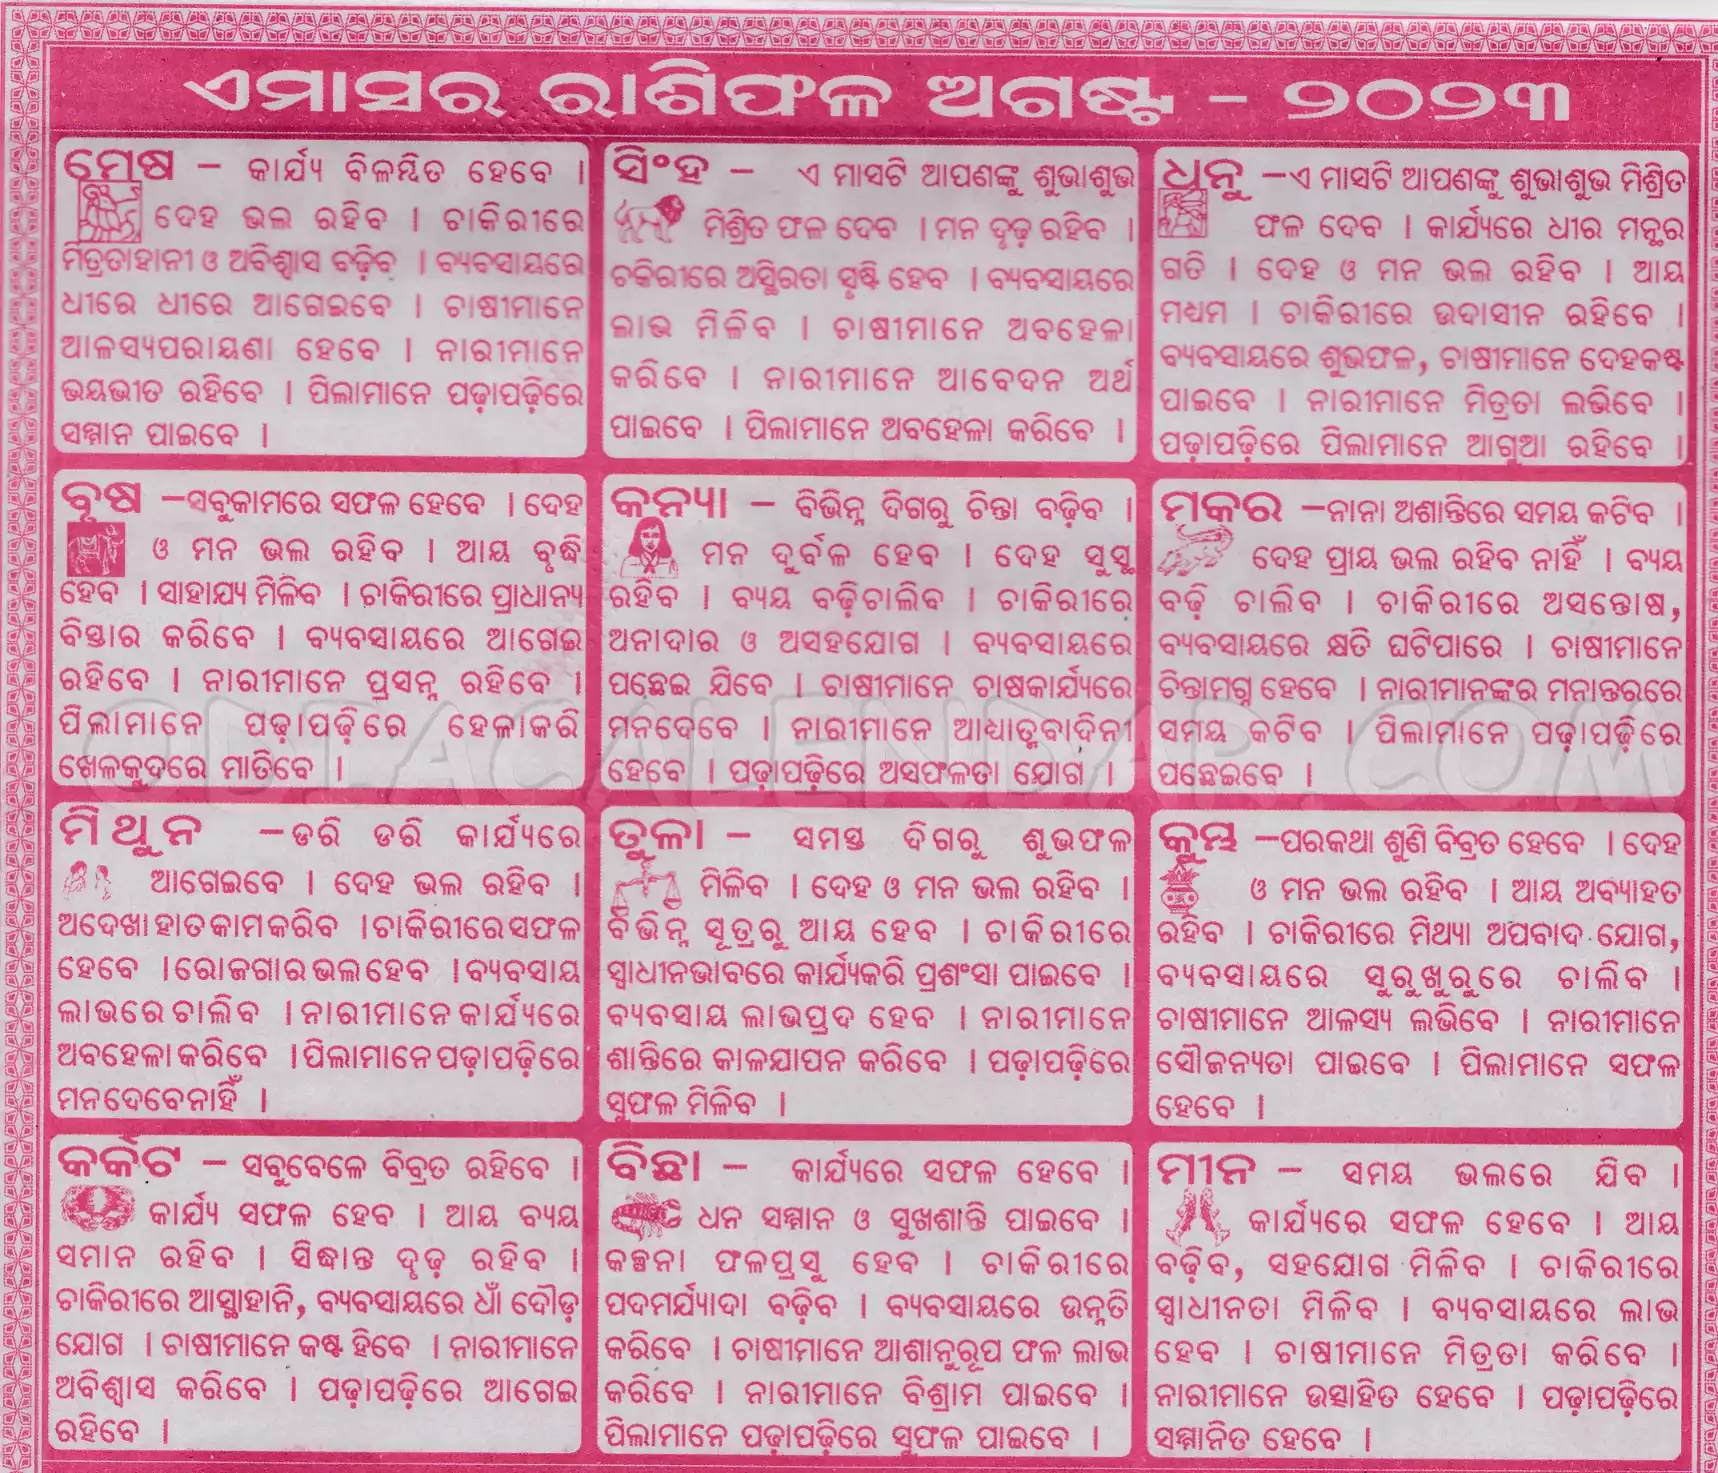 ଏମାସର ରାଶିଫଳ ଅଗଷ୍ଟ - ୨୦୨୩
ମେଷ – କାର୍ଯ୍ୟ ବିଳମ୍ବିତ ହେବେ ।
ଦେହ ଭଲ ରହିବ । ଚାକିରୀରେ
ମିତ୍ରତାହାନୀ ଓ ଅବିଶ୍ୱାସ ବଢ଼ିବ । ବ୍ୟବସାୟରେ
ଧୀରେ ଧୀରେ ଆଗେଇବେ । ଚାଷୀମାନେ
ଆଳସ୍ୟପରାୟଣା ହେବେ । ନାରୀମାନେ
ଭୟଭୀତ ରହିବେ । ପିଲାମାନେ ପଢ଼ାପଢ଼ିରେ
ସମ୍ମାନ ପାଇବେ ।
ବୃଷ –ସବୁକାମରେ ସଫଳ ହେବେ । ଦେହ
ଓ ମନ ଭଲ ରହିବ । ଆୟ ବୃଦ୍ଧି
ହେବ । ସାହାଯ୍ୟ ମିଳିବ । ଚାକିରୀରେ ପ୍ରାଧାନ୍ୟ
ବିସ୍ତାର କରିବେ । ବ୍ୟବସାୟରେ ଆଗେଇ
ରହିବେ । ନାରୀମାନେ ପ୍ରସନ୍ନ ରହିବେ ।
ପିଲାମାନେ ପଢ଼ାପଢ଼ିରେ ହେଳାକରି
ଖେଳକୁଦରେ ମାତିବେ ।
ମିଥୁନ –ଡରି ଡରି କାର୍ଯ୍ୟରେ
ଆଗେଇବେ । ଦେହ ଭଲ ରହିବ ।
ଅଦେଖା ହାତ କାମ କରିବ । ଚାକିରୀରେ ସଫଳ
ହେବେ । ରୋଜଗାର ଭଲ ହେବ । ବ୍ୟବସାୟ
ଲାଭରେ ଚାଲିବ । ନାରୀମାନେ କାର୍ଯ୍ୟରେ
ଅବହେଳା କରିବେ । ପିଲାମାନେ ପଢ଼ାପଢ଼ିରେ
ମନଦେବେନାହିଁ ।
କର୍କଟ – ସବୁବେଳେ ବିବ୍ରତ ରହିବେ ।
କାର୍ଯ୍ୟ ସଫଳ ହେବ । ଆୟ ବ୍ୟୟ
ସମାନ ରହିବ । ସିଦ୍ଧାନ୍ତ ଦୃଢ଼ ରହିବ ।
ଚାକିରୀରେ ଆସ୍ଥାହାନି, ବ୍ୟବସାୟରେ ଧାଁ ଦୌଡ଼
ଯୋଗ । ଚାଷୀମାନେ କଷ୍ଟ ହିବେ । ନାରୀମାନେ
ଅବିଶ୍ୱାସ କରିବେ । ପଢ଼ାପଢ଼ିରେ ଆଗେଇ
ରହିବେ ।
ସିଂହ – ଏ ମାସଟି ଆପଣଙ୍କୁ ଶୁଭାଶୁଭ
ମିଶ୍ରିତ ଫଳ ଦେବ । ମନ ଦୃଢ଼ ରହିବ ।
ଚକିରୀରେ ଅସ୍ଥିରତା ସୃଷ୍ଟି ହେବ । ବ୍ୟବସାୟରେ
ଲାଭ ମିଳିବ । ଚାଷୀମାନେ ଅବହେଳା
କରିବେ । ନାରୀମାନେ ଆବେଦନ ଅର୍ଥ
ପାଇବେ । ପିଲାମାନେ ଅବହେଳା କରିବେ ।
କନ୍ୟା – ବିଭିନ୍ନ ଦିଗରୁ ଚିନ୍ତା ବଢ଼ିବ ।
ମନ ଦୁର୍ବଳ ହେବ । ଦେହ ସୁସ୍ଥ
ରହିବ । ବ୍ୟୟ ବଢ଼ିଚାଲିବ । ଚାକିରୀରେ
ଅନାଦାର ଓ ଅସହଯୋଗ । ବ୍ୟବସାୟରେ
ପଛେଇ ଯିବେ । ଚାଷୀମାନେ ଚାଷକାର୍ଯ୍ୟରେ
ମନଦେବେ । ନାରୀମାନେ ଆଧ୍ୟାତ୍ମବାଦିନୀ
ହେବେ । ପଢ଼ାପଢ଼ିରେ ଅସଫଳତା ଯୋଗ ।
ତୁଳା – ସମସ୍ତ ଦିଗରୁ ଶୁଭଫଳ
ମିଳିବ । ଦେହ ଓ ମନ ଭଲ ରହିବ ।
ବିଭିନ୍ନ ସୂତ୍ରରୁ ଆୟ ହେବ । ଚାକିରୀରେ
ସ୍ୱାଧୀନଭାବରେ କାର୍ଯ୍ୟକରି ପ୍ରଶଂସା ପାଇବେ ।
ବ୍ୟବସାୟ ଲାଭପ୍ରଦ ହେବ । ନାରୀମାନେ
ଶାନ୍ତିରେ କାଳଯାପନ କରିବେ । ପଢ଼ାପଢ଼ିରେ
ସୁଫଳ ମିଳିବ ।
ବିଛା – କାର୍ଯ୍ୟରେ ସଫଳ ହେବେ ।
ଧନ ସମ୍ମାନ ଓ ସୁଖଶାନ୍ତି ପାଇବେ ।
କଳ୍ପନା ଫଳପ୍ରସୁ ହେବ । ଚାକିରୀରେ
ପଦମର୍ଯ୍ୟାଦା ବଢ଼ିବ । ବ୍ୟବସାୟରେ ଉନ୍ନତି
କରିବେ । ଚାଷୀମାନେ ଆଶାନୁରୂପ ଫଳ ଲାଭ
କରିବେ । ନାରୀମାନେ ବିଶ୍ରାମ ପାଇବେ ।
ପିଲାମାନେ ପଢ଼ାପଢ଼ିରେ ସୁଫଳ ପାଇବେ ।
ଧନୁ –ଏ ମାସଟି ଆପଣଙ୍କୁ ଶୁଭାଶୁଭ ମିଶ୍ରିତ
ଫଳ ଦେବ । କାର୍ଯ୍ୟରେ ଧୀର ମନ୍ଥର
ଗତି । ଦେହ ଓ ମନ ଭଲ ରହିବ । ଆୟ
ମଧ୍ୟମ । ଚାକିରୀରେ ଉଦାସୀନ ରହିବେ ।
ବ୍ୟବସାୟରେ ଶୁଭଫଳ, ଚାଷୀମାନେ ଦେହକଷ୍ଟ
ପାଇବେ । ନାରୀମାନେ ମିତ୍ରତା ଲଭିବେ ।
ପଢ଼ାପଢ଼ିରେ ପିଲାମାନେ ଆଗୁଆ ରହିବେ ।
ମକର –ନାନା ଅଶାନ୍ତିରେ ସମୟ କଟିବ ।
ଦେହ ପ୍ରାୟ ଭଲ ରହିବ ନାହିଁ । ବ୍ୟୟ
ବଢ଼ି ଚାଲିବ । ଚାକିରୀରେ ଅସନ୍ତୋଷ,
ବ୍ୟବସାୟରେ କ୍ଷତି ଘଟିପାରେ । ଚାଷୀମାନେ
ଚିନ୍ତାମଗ୍ନ ହେବେ । ନାରୀମାନଙ୍କର ମନାନ୍ତରରେ
ସମୟ କଟିବ । ପିଲାମାନେ ପଢ଼ାପଢ଼ିରେ
ପଛେଇବେ ।
କୁମ୍ଭ –ପରକଥା ଶୁଣି ବିବ୍ରତ ହେବେ । ଦେହ
ଓ ମନ ଭଲ ରହିବ । ଆୟ ଅବ୍ୟାହତ
ରହିବ । ଚାକିରୀରେ ମିଥ୍ୟା ଅପବାଦ ଯୋଗ,
ବ୍ୟବସାୟରେ ସୁରୁଖୁରୁରେ ଚାଲିବ ।
ଚାଷୀମାନେ ଆଳସ୍ୟ ଲଭିବେ । ନାରୀମାନେ
ସୌଜନ୍ୟତା ପାଇବେ । ପିଲାମାନେ ସଫଳ
ହେବେ ।
ମୀନ – ସମୟ ଭଲରେ ଯିବ ।
କାର୍ଯ୍ୟରେ ସଫଳ ହେବେ । ଆୟ
ବଢ଼ିବ, ସହଯୋଗ ମିଳିବ । ଚାକିରୀରେ
ସ୍ୱାଧୀନତା ମିଳିବ । ବ୍ୟବସାୟରେ ଲାଭ
ହେବ । ଚାଷୀମାନେ ମିତ୍ରତା କରିବେ ।
ନାରୀମାନେ ଉତ୍ସାହିତ ହେବେ । ପଢ଼ାପଢ଼ିରେ
ସମ୍ମାନିତ ହେବେ ।
ODIACALENDAR.COM